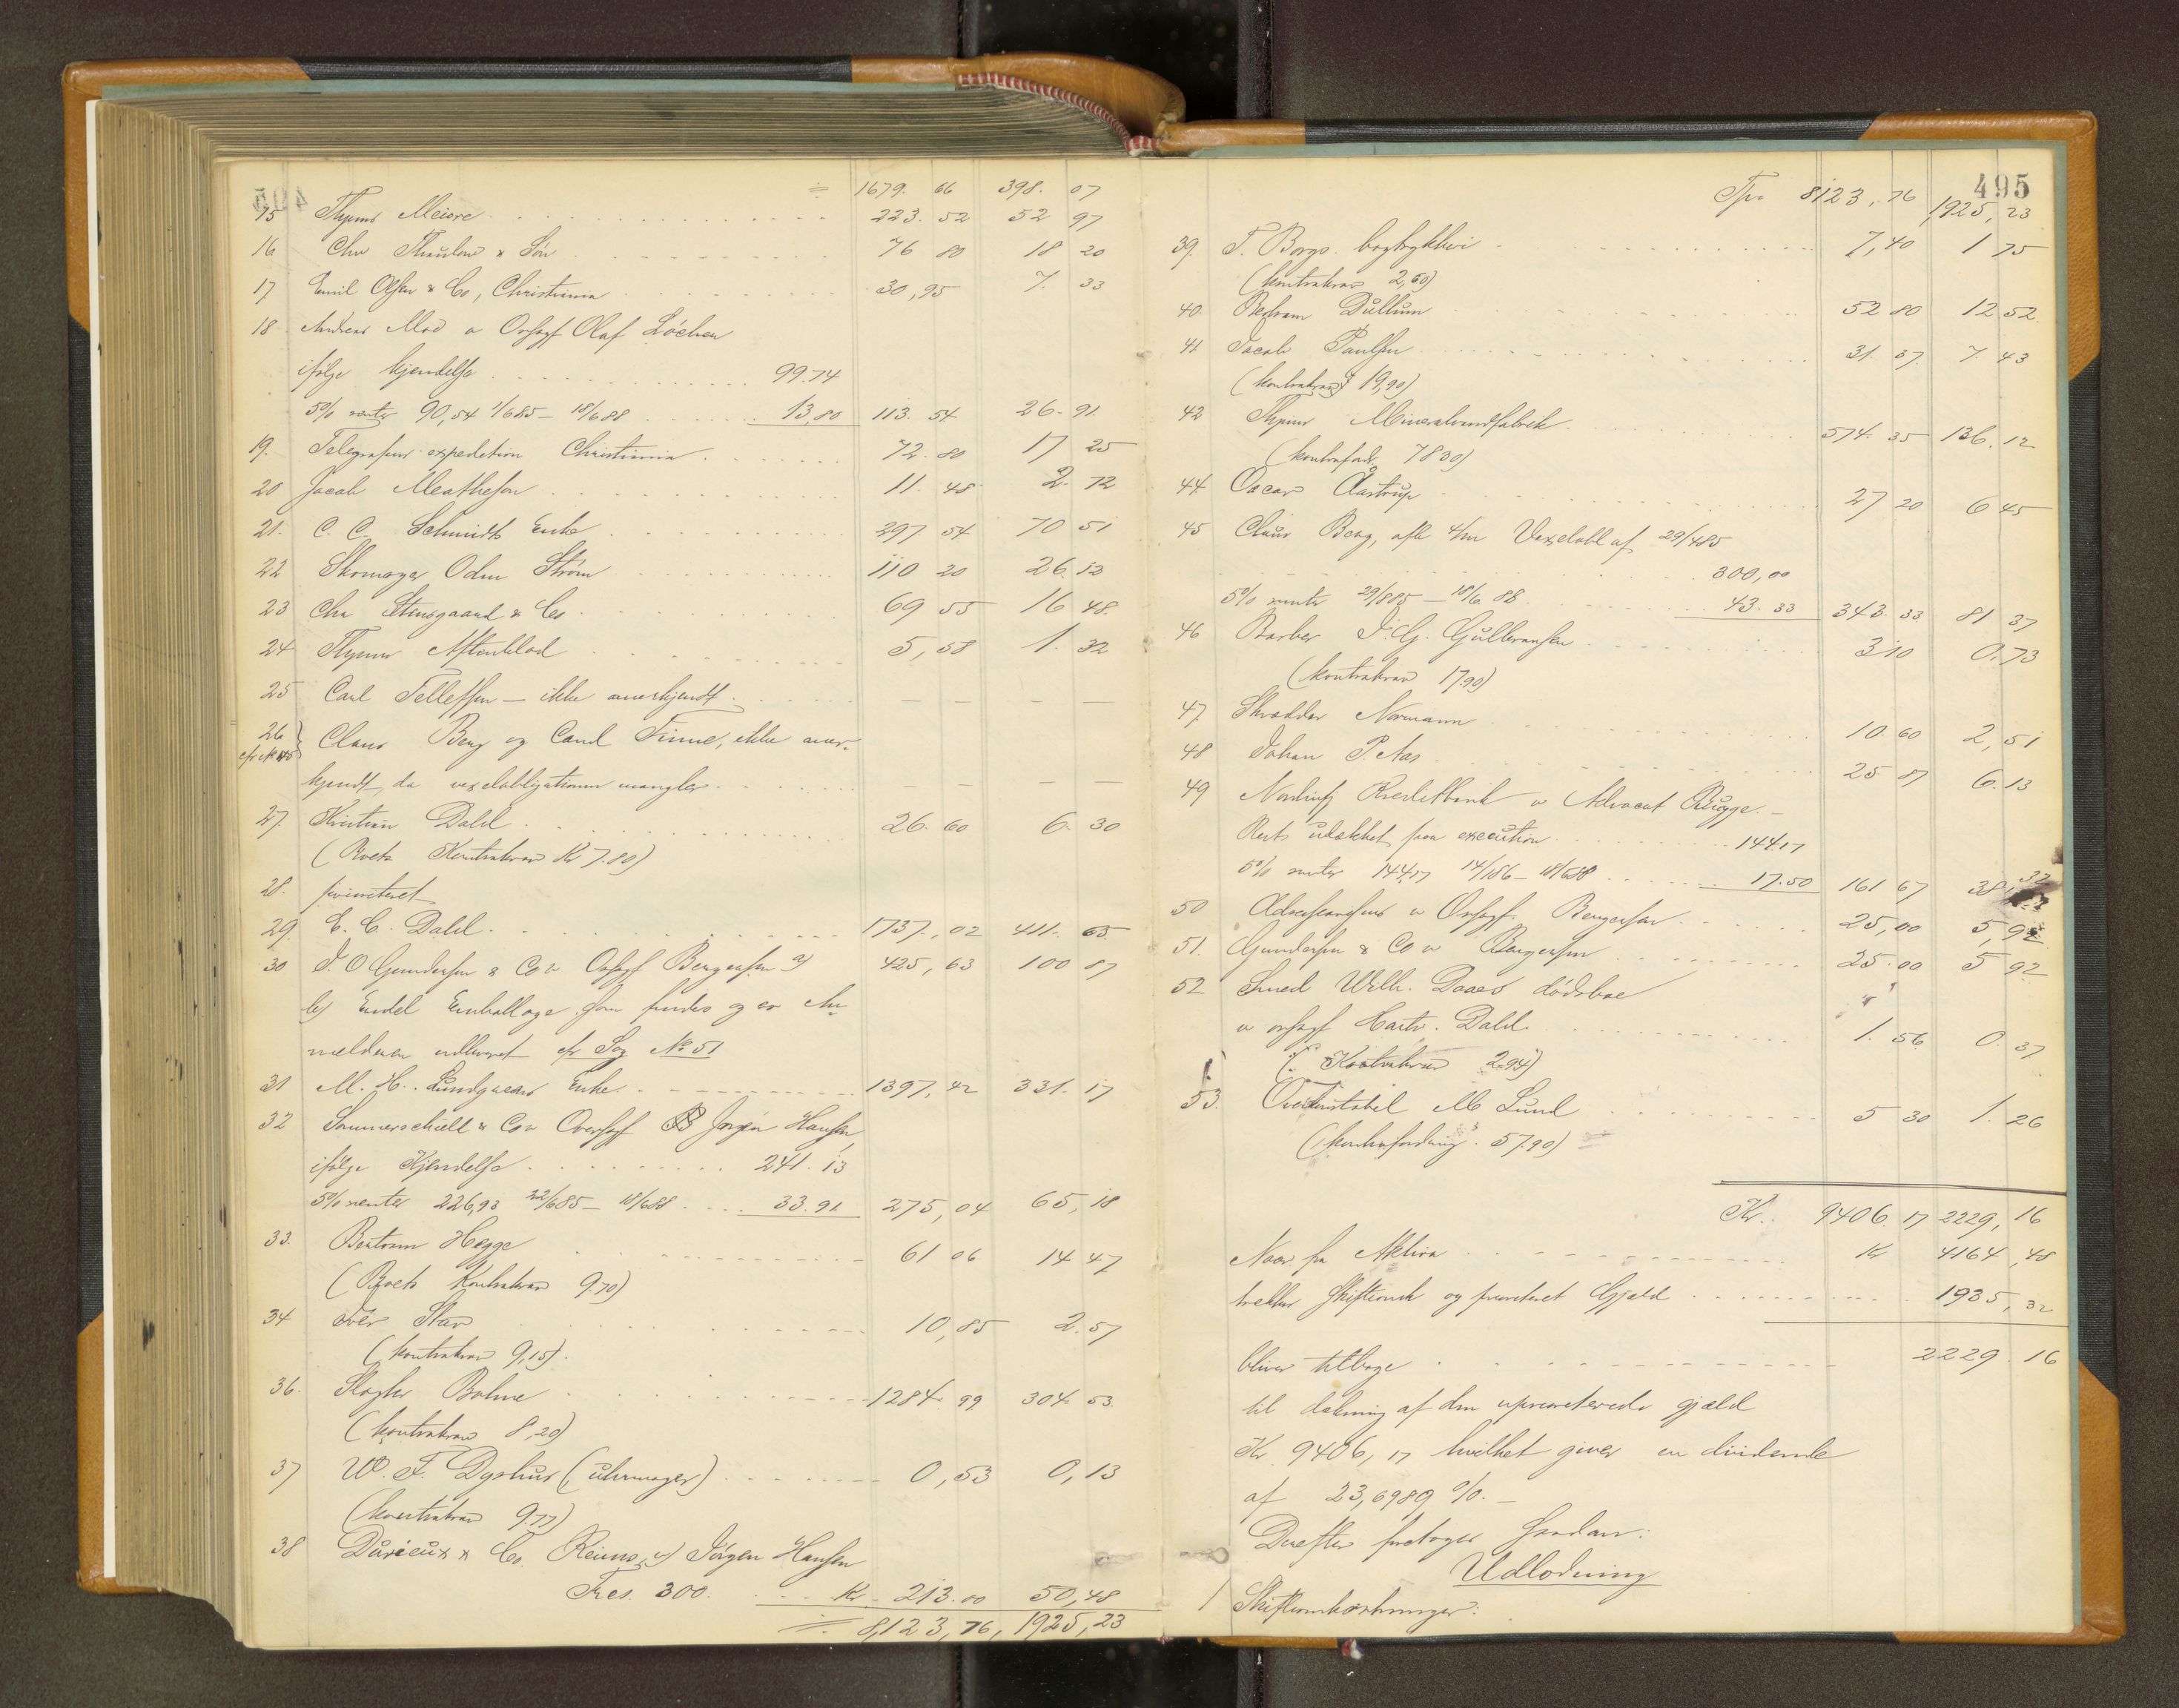 = 1679. 66 398. 07
15 Thjems Meieri 223. 52 52 97
16 Chr Thaulow & Søn 76 80 18 20
17 Emil Olsen & Co, Christiania 30,95 7. 33
18 Andreas Moe v Orsagf Olaf Löchen
ifølge kjendelse 99.74
5% renter 90,54 1/6 85 – 18/6 88 13,80 113. 54 26. 91.
19. Telegrafens expedition Christiania 72. 80 17 25
20 Jacob Matheson 11. 48 2. 72
21. C. C. Schmidts Enke 297 54 70 51
22 Skomager Odin Strøm 110 20 26. 12
23 Chr Stensgaard & Co 69 55 16 48.
24 Thjems Aftenblad 5,58 1. 32
25 Carl Tellefsen – ikke anerkjendt — — — —
26 cfr No 45 Claus Berg og Cand Finne, ikke aner-
kjendt da vexelobligationen mangler — — — —
27. Kristian Dahl 26. 60 6. 30
(Boets Kontrakrav Kr 7.80)
28. prioriteret
29. E. C. Dahl 1737.,02 411. 65
30 J. O Gundersen & Co v Orsagf Bergersen a) 425,63 100 87
b) Endel Emballage som findes og er An-
melderen udleveret cfr Sag No 51
31 M. H. Lundgaards Enke 1397,42 331. 17
32 Sommerschiell & Co v Oversagf Jørgen Hansen
ifølge Kjendelse 241. 13
5% renter 226,93 22/6 85 – 18/6 88 33.91 275,04 65,18
33. Bertram Hegge 61 06 14 47
(Boets Kontrakrav 9.70)
34 Stav 10,85 2.57
(kontrakrav 9,15).
36. Slagter Bohne 1284. 99 304. 53.
(kontrakrav 8,20)
37 W. F. Dyshus (uhrmager) 0,53 0,13
(kontrakrav 9.77)
38 Durieux & Co. Reims v/ Jörgen Hansen
Frcs. 300. Kr. 213.00 50,48
= 8,123,76, 1925,23
495
Tpr 8123,76 1925,23
39. F. Borgs. bogtrykkeri 7,40 1 75
(kontrakrav 2,60)
40. Bertram Dullum 52 80 12 52
41 Jacob Paulsen 31. 37. 7. 43
(kontrakrav 19,90)
42 Thjems Mineralvandfabrik 574. 35 136. 12
(kontrafordr. 78 30)
44. Oscar Aastrup 27 20 6 45
45 Claus Berg, afk 4/m Vexelobl af 29/4 85
300,00
5% renter 29/8 85 – 18/6 88 43. 33 343. 33 81 37
46 Barber J. G. Gulbransen 3 10 0,73
(kontrakrav 17.90)
47. Skrædder Normann 10. 60 2,51
48 Johan P. Aas 25 87 6. 13
49 Nordenfj Kreditbank v Advocat Bugge. –
Rest udækket fra execution 144.17
5% renter 144,17 14/1 86 – 18/6 88 17.50 161 67 38,32
50 Adresseavisens v Orsagf. Bergersen 25,00 5,92
51. Gundersen & Co v Bergersen 25.00 5 92
52 Smed Wilh. Daaes dödsboe
v orsagf Hartv. Dahl 1. 56 0. 37
(Kontrakrav 2.94)
53. Overkonstabel M Lund 5 30 1. 26
(kontrafordring. 57.90)
Kr. 9406. 17 2229,16
Naar fra Aktiva Kr 4164,48
trækkes Skifteomk og prioriteret Gjæld 1935,32
bliver tilbage 2229. 16
til dækning af den uprioriterede gjæld
Kr. 9406,17 hvilket giver en dividende
af 23,6989 %. –
Derefter foretages saadan:
Udlodning
1 Skifteomkostninger: